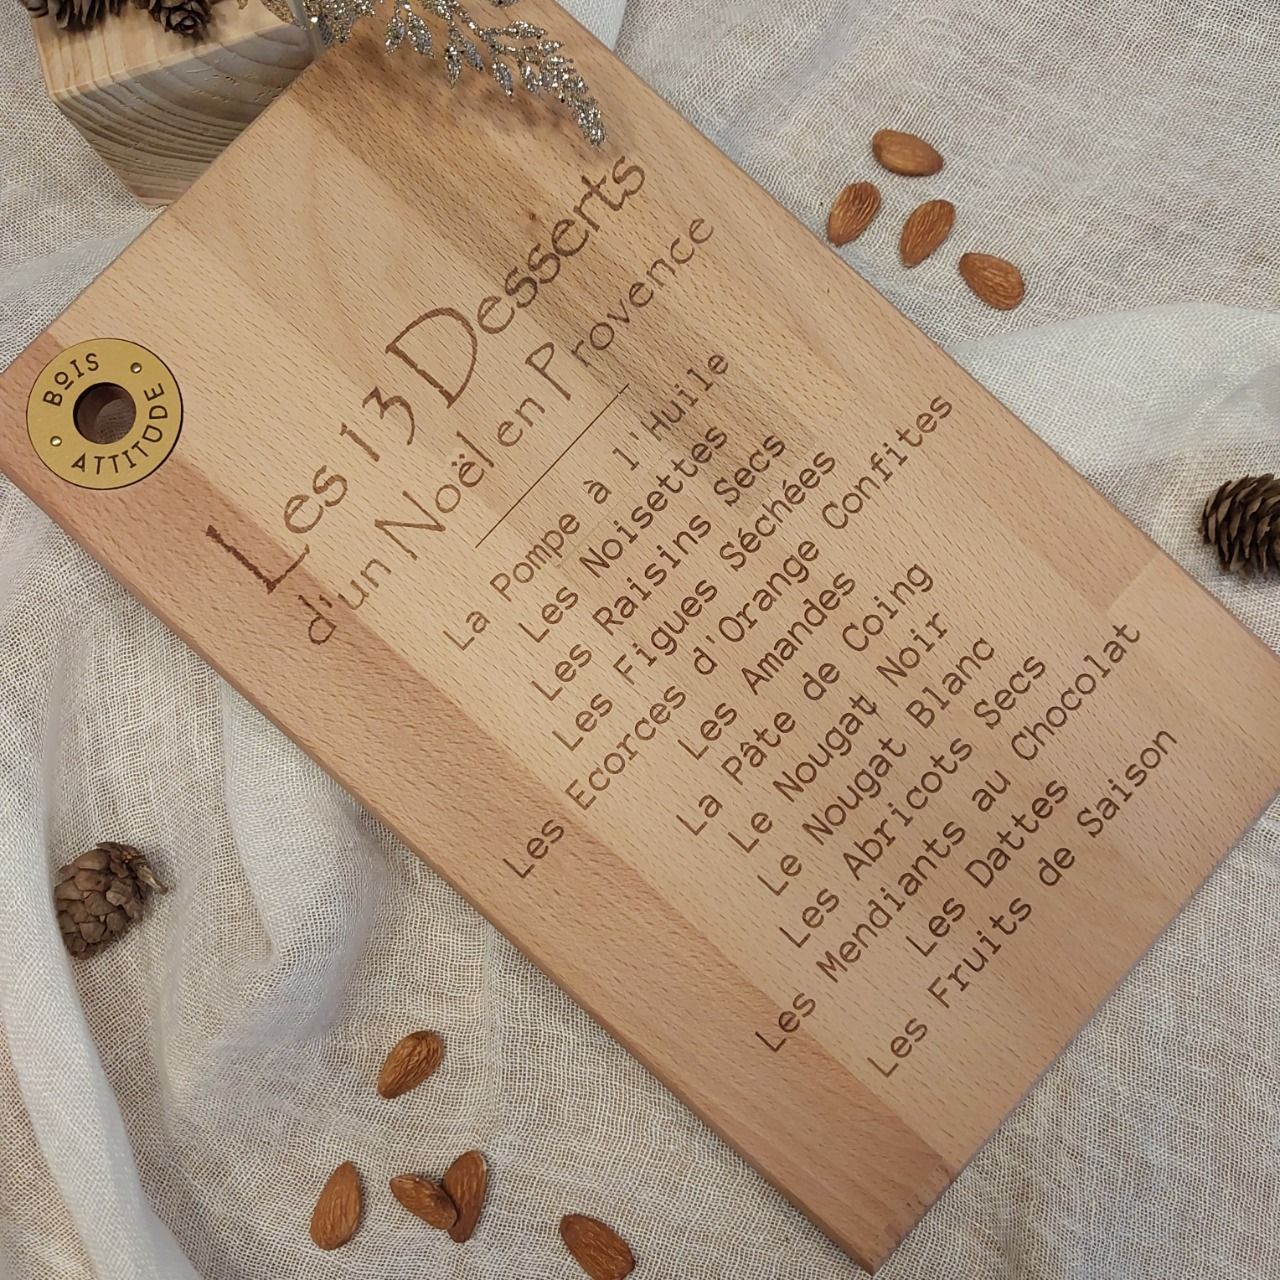 BOIS
ATTITUDE
Les 13 Desserts
d'un Noël en Provence
La Pompe à l'Huile
Les Noisettes
Les Raisins Secs
Les Figues Séchées
Les Ecorces d'Orange Confites
Les Amandes
La Pâte de Coing
Le Nougat Noir
Le Nougat Blanc
Les Abricots Secs
Les Mendiants au Chocolat
Les Dattes
Les Fruits de Saison